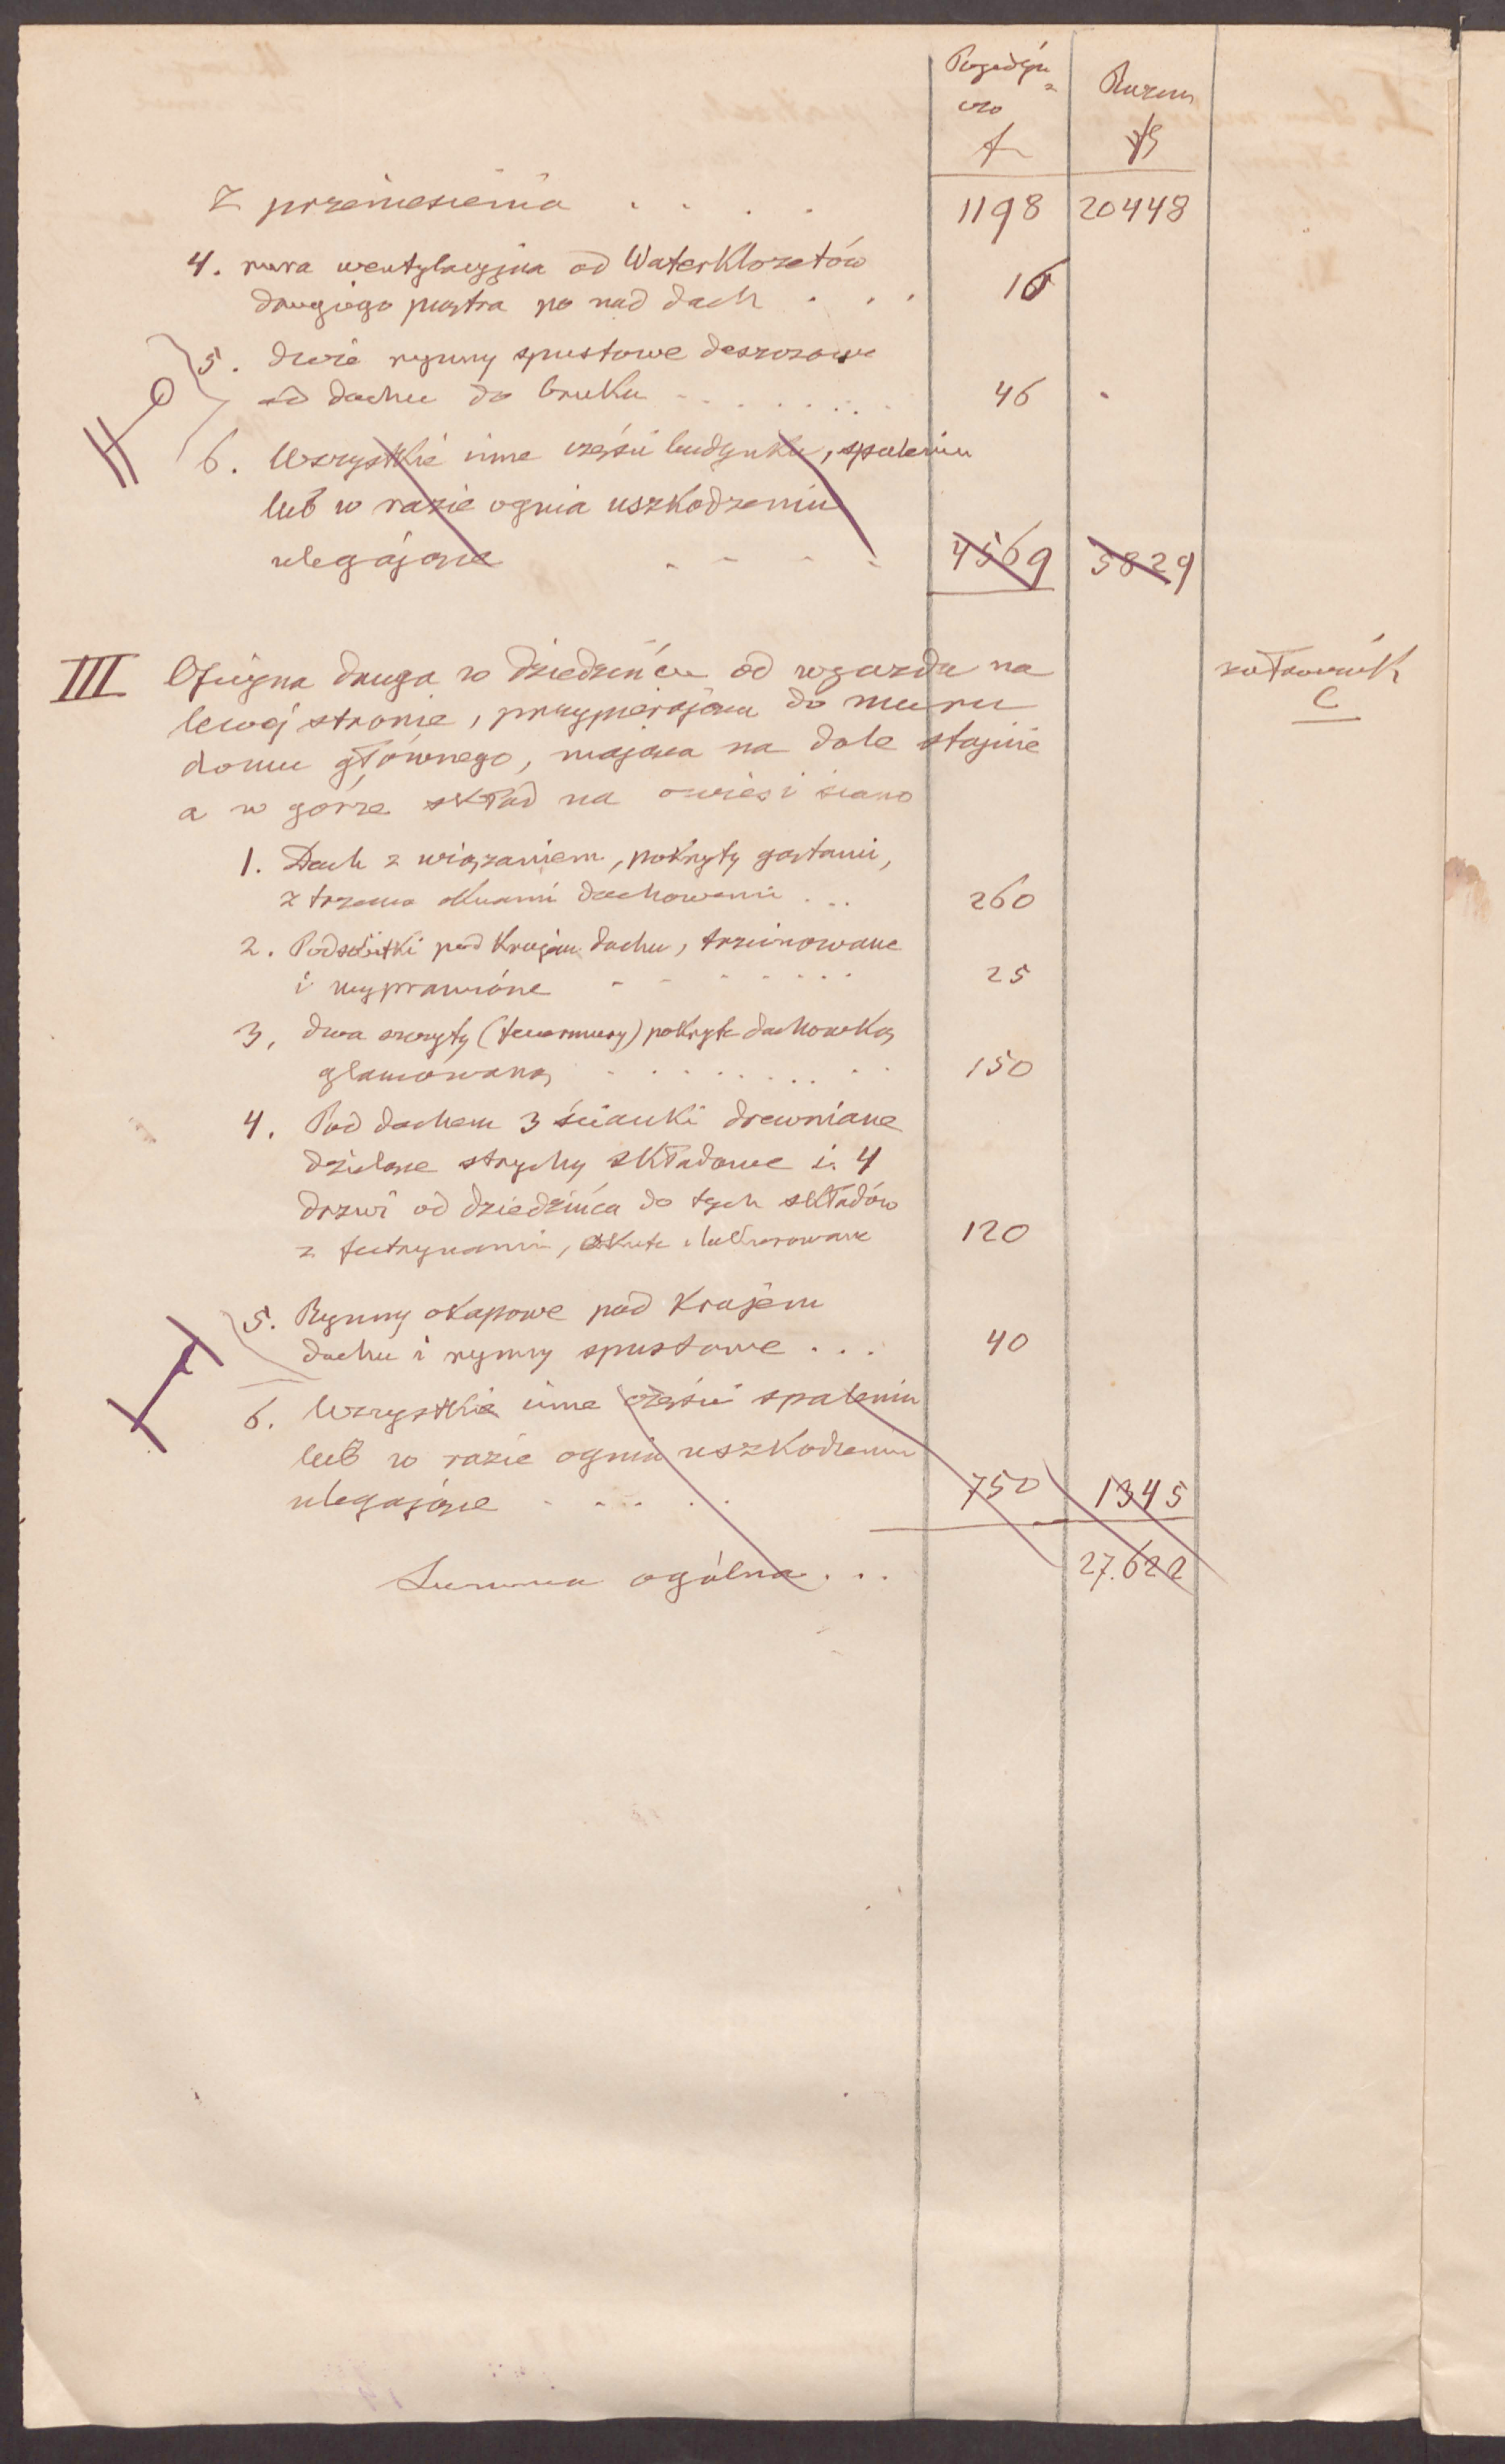 Pojedyń
czo
Razem
Z przeniesienia . . . . 1198 20448
4. rura wentylacyjna od Waterklozetów
drugiego piętra po nad dach . . . 16
5. dwie rynny spustowe deszczowe
od dachu do bruku - . . . . . . 46 -
6. Wszystkie inne części budynku, spaleniu
lub w razie ognia uszkodzeniu
ulegające - - - - 4569 5829
III Oficyna druga w dziedzińcu od wjazdu na załącznik
lewej stronie, przypierająca do muru C
domu głównego, mająca na dole stajnie
a w górze skład na owies i siano
1. Dach z wiązaniem, pokryty gątami,
z trzema oknami dachowemi . . . 260
2. Podsóbitki pod krajem dachu, trzcinowane
i wyprawione - - - - - - - 25
3, dwa szczyty (feuermury) pokryte dachówką
glancowaną . . . . . . . . 150
4. Pod dachem 3 ścianki drewniane
dzielące strychy składowe i 4
drzwi od dziedzińca do tych składów
z futrynami, okute i lakierowane 120
5. Rynny okapowe pod krajem
dachu i rynny spustowe . . . 40
6. Wszystkie inne części spaleniu
lub w razie ognia uszkodzeniu
ulegające - . . . . . 750 1345
Summa ogólna . . . 27.622